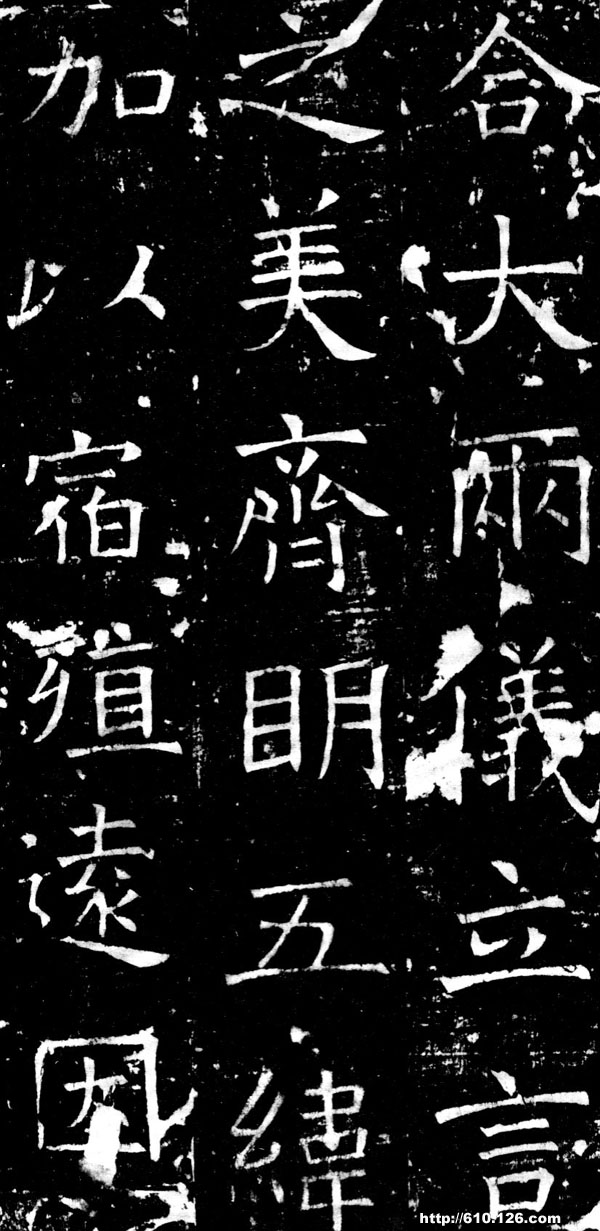 含大兩儀立言
之美齊明五緯
加以宿殖遠因
http://610.126.com